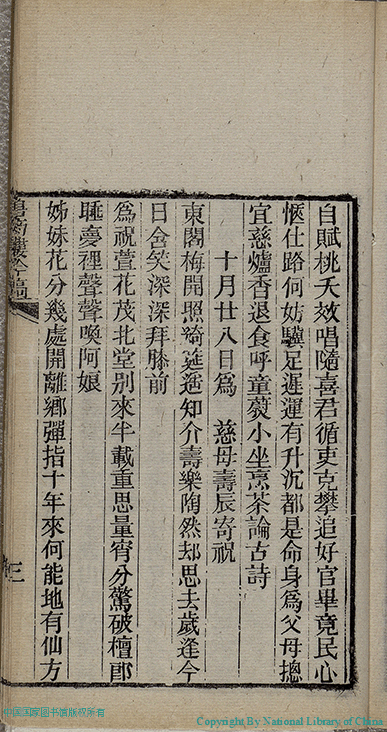 自賦桃夭效唱隨喜君循吏克攀追好官畢竟民心
愜仕路何妨驥足遲運有升沉都是命身爲父母摠
宜慈爐香退食呼童爇小坐烹茶論古詩
十月廿八日爲 慈母壽辰寄祝
東閣梅開照綺筵遥知介壽樂陶然却思去歲逢今
日含笑深深拜膝前
爲祝萱花茂北堂别來半載重思量宵分驚破檀郎
睡夢裡聲聲喚阿娘
姊妹花分幾處開離鄉彈指十年來何能地有仙方
樓吟稿
三
中国国家图书馆版权所有
Copyright By National Library of China